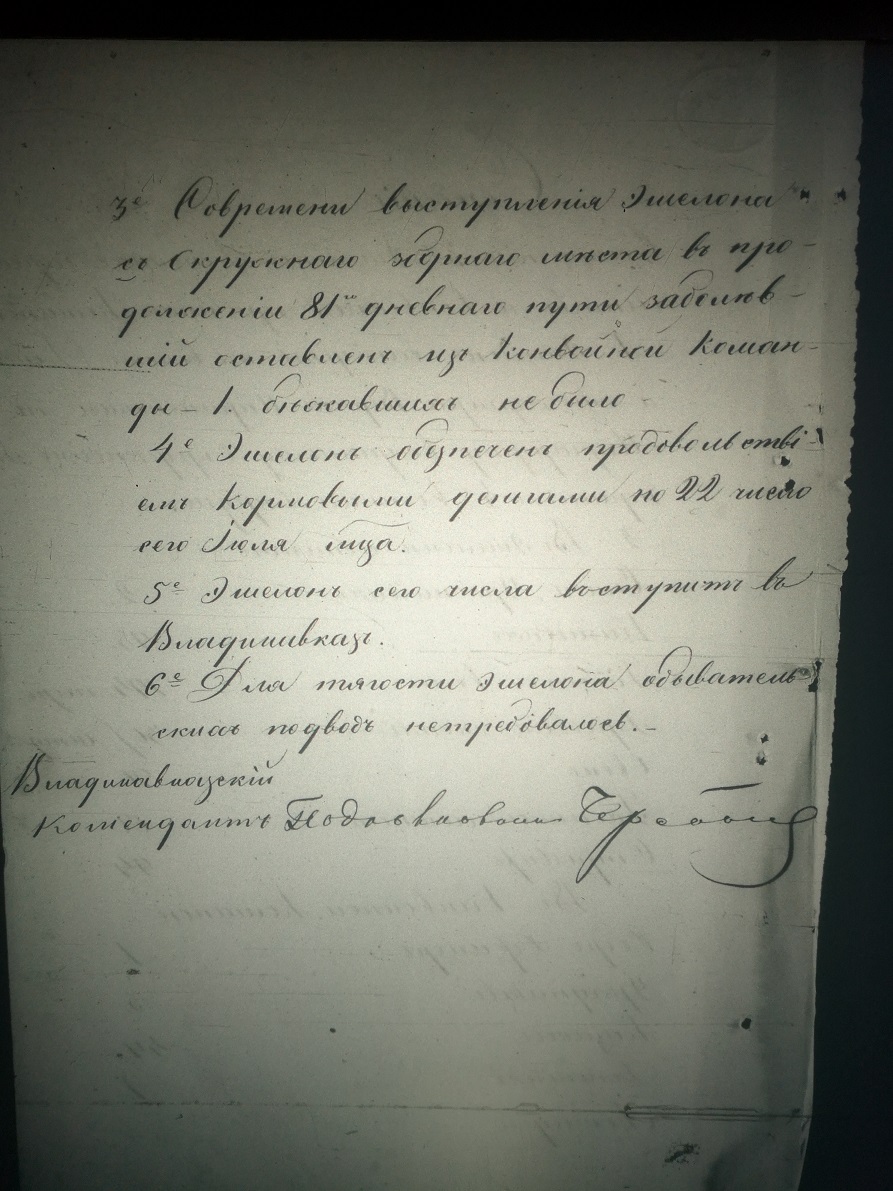 3е Современи выступленія Эшелона
съ Окружнаго зборнаго мѣста въ про-
долженіи 81го дневнаго пути заболѣв-
шій оставленъ изъ Конвойной Коман-
ды - 1. бѣжавшихъ не было
4е Эшелонъ обезпеченъ продовольстві-
емъ кормовыми деньгами по 22 число
сего Іюля мца.
5е Эшелонъ сего числа выступитъ въ
Владикивказъ.
6е Для тягости эшелона обыватель-
скихъ подводъ нетребовалось. -
Владикавказскій
Комендантъ Подполковникъ